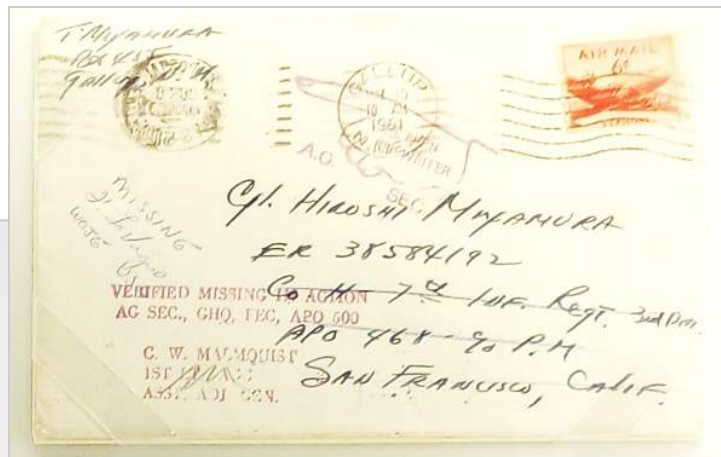 T. MIYAMURA
BOX 455
Gallup, N. M.
GALLUP
10 AM
1951
N. MEX.
WRITER
A.G. SEC.
AIR MAIL
6¢
MISSING
WOJG
Cpl. HIROSHI MIYAMURA
ER 38584192
Co H - 7th INF. Regt. 3rd Div.
APO 468 - c/o P.M
SAN FRANCISCO, CALIF.
VERIFIED MISSING IN ACTION
AG SEC., GHQ, FEC, APO 500
C. W. MALMQUIST
1ST
ASST. ADJ. GEN.